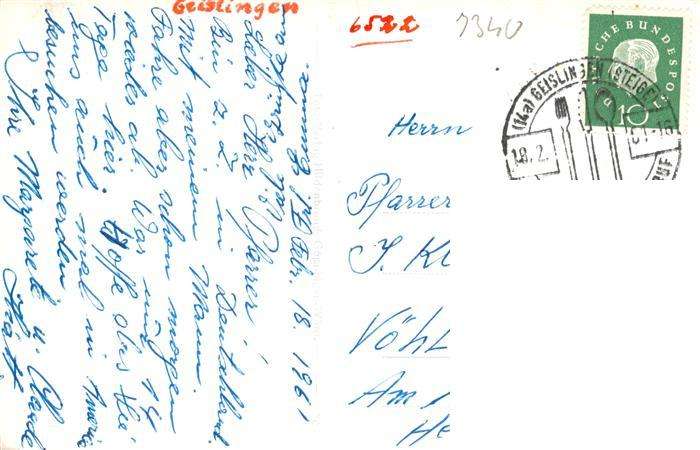 Geislingen
6522
7340
CHE BUNDESPOST
10
(14a) GEISLINGEN (STEIGE)
18.2.
Herrn
Pfarrer
J. Kl
Vöhl
Am
He
Febr. 18. 1961
Lieber Herr Pfarrer!
Bin z. Z. in Deutschland
Mit meinem Mann.
Fahre aber schon morgen
wieder ab. War nur 14
Tage hier. Hoffe dass Sie
uns auch mal in Amerika
besuchen werden
Ihre Margaret u.